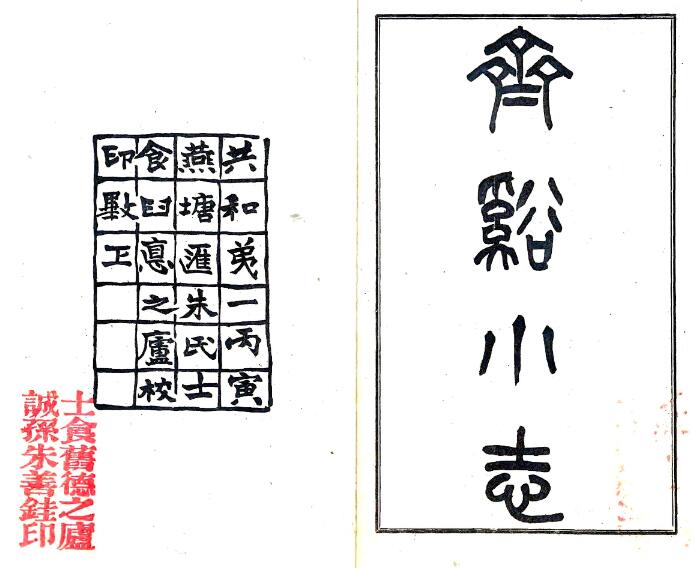 齊谿小志
共和弟一丙寅
燕塘滙朱氏士
食臼悳之廬校
印工
士食舊德之廬
誠孫朱善銈印